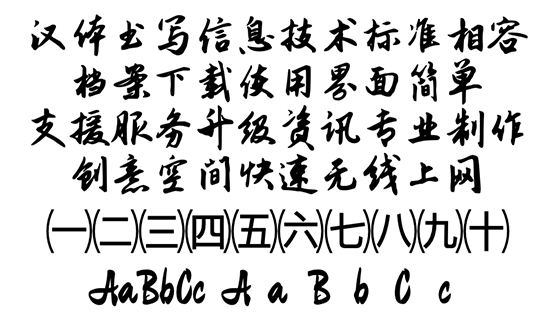 汉体书写信息技术标准相容
档案下载使用界面简单
支援服务升级资讯专业制作
创意空间快速无线上网
㈠㈡㈢㈣㈤㈥㈦㈧㈨㈩
AaBbCc A a B b C c